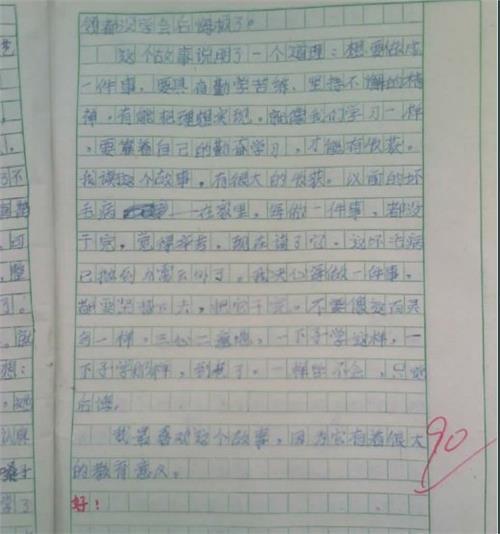 领都没学会后悔极了。
这个故事说明了一个道理：想要做成
一件事，要具有勤学苦练、坚持不懈的精
神，有能把理想实现。就像我们学习一样
，要靠着自己的勤奋学习，才能有收获。
我读这个故事，有很大的收获。以前的坏
毛病 一在家里，每做一件事，都没
干完，觉得辛苦，现在读了它，这坏毛病
已抛到九霄云外了。我决心每做一件事，
都要坚持下去，把它干完。不要像
鸟一样，三心二意地，一下子学这样，一
下子学那样，到老了，一样也不会，只
后悔。
我最喜欢这个故事，因为它有着很大
的教育意义。
好！
90
艺
了不
想：
她
桑子
学了